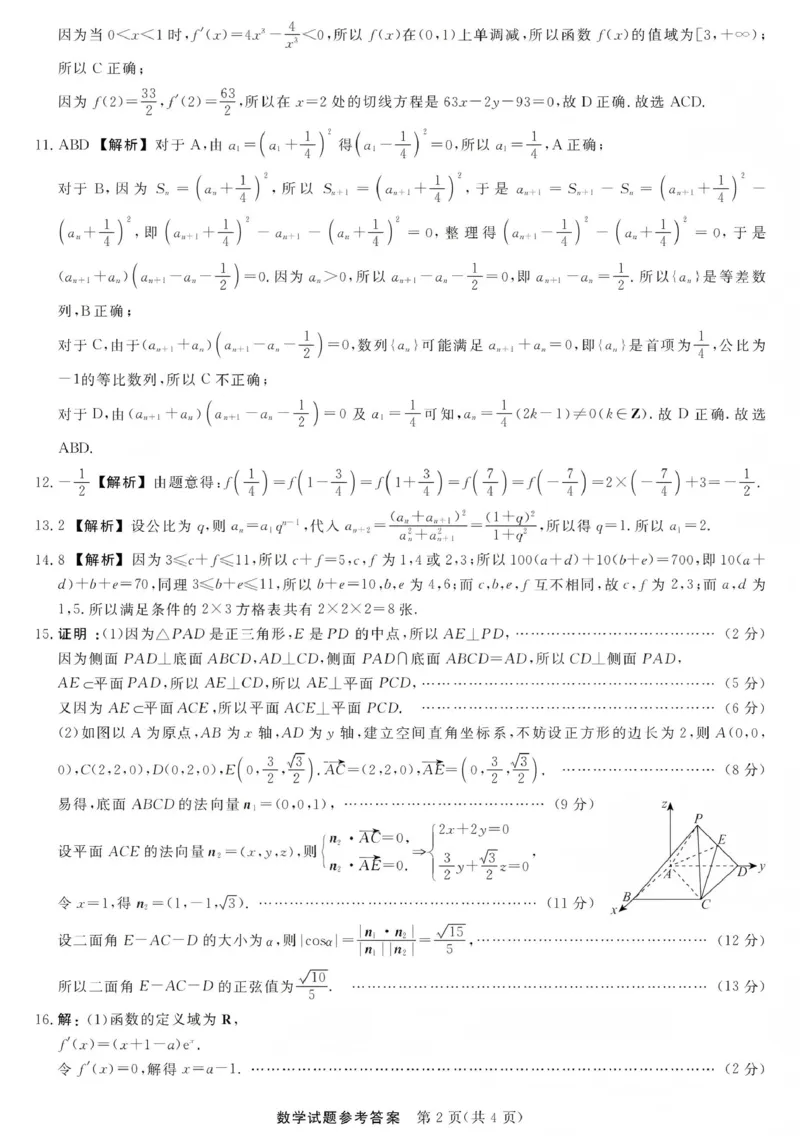 因为当0<x<1时,f′(x)=4xˣ−4/x³<0,所以 f(x)在(0,1)上单调减,所以函数 f(x)的值域为[3,+∞);
所以 C 正确;
因为 f(2)=33/2,f′(2)=63/2,所以在 x=2 处的切线方程是 63x−2y−93=0,故 D 正确.故选 ACD.
11. ABD 【解析】对于 A,由 a₁=(a₁+1/4)² 得(a₁−1/4)²=0,所以 a₁=1/4,A 正确;
对于 B,因为 Sₙ=(aₙ+1/4)²,所以 Sₙ₊₁=(aₙ₊₁+1/4)²,于是 aₙ₊₁=Sₙ₊₁−Sₙ=(aₙ₊₁+1/4)²−
(aₙ+1/4)²,即 (aₙ₊₁+1/4)²−aₙ₊₁−(aₙ+1/4)²=0,整理得 (aₙ₊₁−1/4)²−(aₙ+1/4)²=0,于是
(aₙ₊₁+aₙ)(aₙ₊₁−aₙ−1/2)=0.因为 aₙ>0,所以 aₙ₊₁−aₙ−1/2=0,即 aₙ₊₁−aₙ=1/2.所以{aₙ}是等差数
列,B 正确;
对于 C,由于(aₙ₊₁+aₙ)(aₙ₊₁−aₙ−1/2)=0,数列{aₙ}可能满足 aₙ₊₁+aₙ=0,即{aₙ}是首项为1/4,公比为
−1的等比数列,所以 C 不正确;
对于 D,由(aₙ₊₁+aₙ)(aₙ₊₁−aₙ−1/2)=0 及 a₁=1/4可知,aₙ=1/4(2k−1)≠0(k∈Z).故 D 正确.故选
ABD.
12. −1/2 【解析】由题意得:f(1/4)=f(1−3/4)=f(1+3/4)=f(7/4)=f(−7/4)=2×(−7/4)+3=−1/2.
13. 2 【解析】设公比为 q,则 aₙ=a₁qⁿ⁻¹,代入 aₙ₊₂=(aₙ+aₙ₊₁)²/(aₙ²+aₙ₊₁²)=(1+q)²/(1+q²),所以得 q=1.所以 a₁=2.
14. 8 【解析】因为 3≤c+f≤11,所以 c+f=5,c,f 为 1,4 或 2,3;所以 100(a+d)+10(b+e)=700,即 10(a+
d)+b+e=70,同理 3≤b+e≤11,所以 b+e=10,b,e 为 4,6;而 c,b,e,f 互不相同,故 c,f 为 2,3;而 a,d 为
1,5.所以满足条件的 2×3 方格表共有 2×2×2=8 张.
15. 证明:(1)因为△PAD 是正三角形,E 是 PD 的中点,所以 AE⊥PD,…………………………(2 分)
因为侧面 PAD⊥底面 ABCD,AD⊥CD,侧面 PAD∩底面 ABCD=AD,所以 CD⊥侧面 PAD,
AE⊂平面 PAD,所以 AE⊥CD,所以 AE⊥平面 PCD,…………………………(5 分)
又因为 AE⊂平面 ACE,所以平面 ACE⊥平面 PCD. …………………………(6 分)
(2)如图以 A 为原点,AB 为 x 轴,AD 为 y 轴,建立空间直角坐标系,不妨设正方形的边长为 2,则 A(0,0,
0),C(2,2,0),D(0,2,0),E(0,3/2,√3/2).AC→=(2,2,0),AE→=(0,3/2,√3/2). …………………………(8 分)
易得,底面 ABCD 的法向量 n₁=(0,0,1),…………………………(9 分)
设平面 ACE 的法向量 n₂=(x,y,z),则{n₂·AC→=0, n₂·AE→=0. ⇒{2x+2y=0 3/2y+√3/2z=0,
令 x=1,得 n₂=(1,−1,√3). …………………………(11 分)
设二面角 E−AC−D 的大小为 α,则|cosα|=|n₁·n₂|/|n₁||n₂|=√15/5,…………………………(12 分)
所以二面角 E−AC−D 的正弦值为√10/5. …………………………(13 分)
z
P
E
A
D
y
B
x
C
16. 解:(1)函数的定义域为 R,
f′(x)=(x+1−a)eˣ.
令 f′(x)=0,解得 x=a−1. …………………………(2 分)
数学试题参考答案 第 2 页(共 4 页)